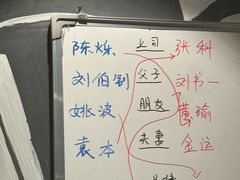 陈烁 上司 张科
刘伯钊 父子 刘书一
姚波 朋友 黄瑜
袁本 夫妻 金运